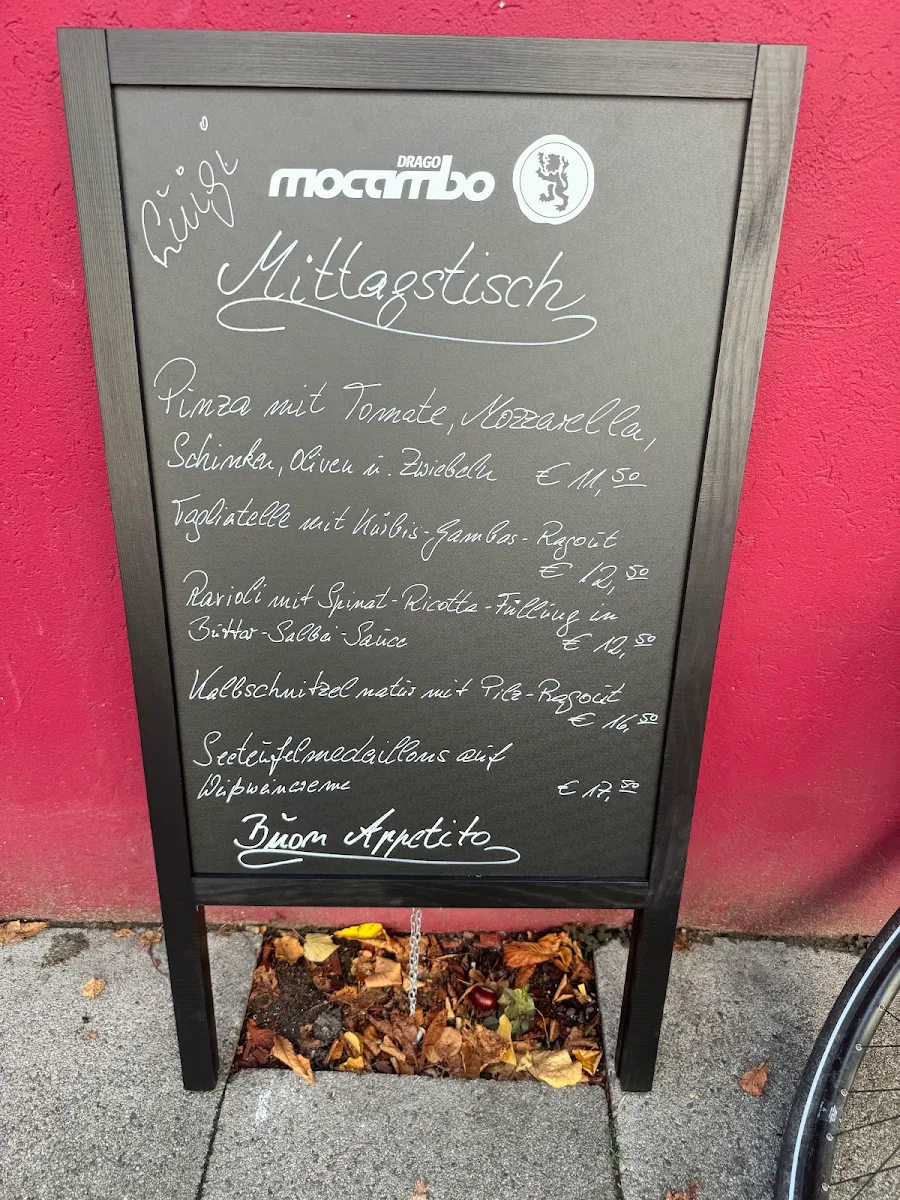 Luigi
DRAGO
mocambo
Mittagstisch
Pinza mit Tomate, Mozzarella,
Schinken, Oliven u. Zwiebeln € 11,50
Tagliatelle mit Kürbis-Gambas-Ragout
€ 12,50
Ravioli mit Spinat-Ricotta-Füllung in
Butter-Salbei-Sauce € 12,50
Kalbschnitzel natur mit Pilz-Ragout
€ 16,50
Seeteufelmedaillons auf
Weißweincreme € 17,50
Buon Appetito